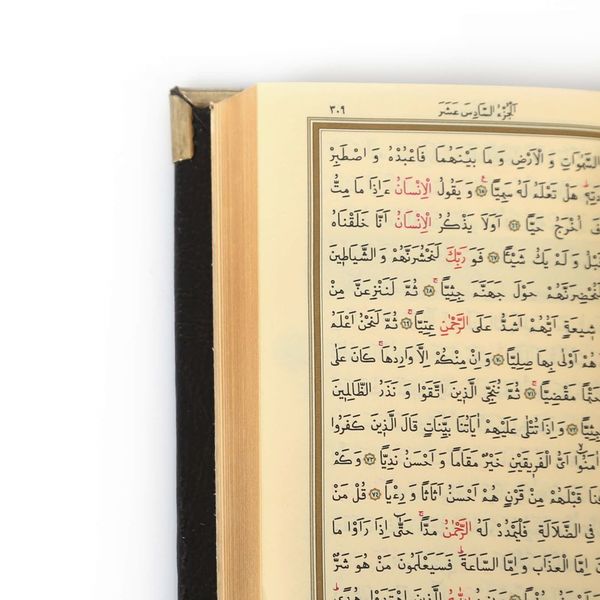 اَلْجُزْءُ السَّادِسَ عَشَرَ ٣٠٩
السَّمٰوَاتِ وَ الْاَرْضِ وَ مَا بَيْنَهُمَا فَاعْبُدْهُ وَ اصْطَبِرْ
هَلْ تَعْلَمُ لَهُ سَمِيًّا ۚ ﴿٦٥﴾ وَ يَقُولُ الْاِنْسَانُ ءَاِذَا مَا مِتُّ
اُخْرَجُ حَيًّا ﴿٦٦﴾ اَوَلَا يَذْكُرُ الْاِنْسَانُ اَنَّا خَلَقْنَاهُ
وَ لَمْ يَكُ شَيْئًا ﴿٦٧﴾ فَوَ رَبِّكَ لَنَحْشُرَنَّهُمْ وَ الشَّيَاطِينَ
لَنُحْضِرَنَّهُمْ حَوْلَ جَهَنَّمَ جِثِيًّا ۚ ﴿٦٨﴾ ثُمَّ لَنَنْزِعَنَّ مِنْ
شِيعَةٍ اَيُّهُمْ اَشَدُّ عَلَى الرَّحْمٰنِ عِتِيًّا ۚ ﴿٦٩﴾ ثُمَّ لَنَحْنُ اَعْلَمُ
هُمْ اَوْلٰى بِهَا صِلِيًّا ﴿٧٠﴾ وَ اِنْ مِنْكُمْ اِلَّا وَارِدُهَا ۚ كَانَ عَلٰى
حَتْمًا مَقْضِيًّا ۚ ﴿٧١﴾ ثُمَّ نُنَجِّي الَّذِينَ اتَّقَوْا وَ نَذَرُ الظَّالِمِينَ
جِثِيًّا ﴿٧٢﴾ وَ اِذَا تُتْلٰى عَلَيْهِمْ اٰيَاتُنَا بَيِّنَاتٍ قَالَ الَّذِينَ كَفَرُوا
اٰمَنُوا اَيُّ الْفَرِيقَيْنِ خَيْرٌ مَقَامًا وَ اَحْسَنُ نَدِيًّا ﴿٧٣﴾ وَ كَمْ
قَبْلَهُمْ مِنْ قَرْنٍ هُمْ اَحْسَنُ اَثَاثًا وَ رِءْيًا ﴿٧٤﴾ قُلْ مَنْ
فِي الضَّلَالَةِ فَلْيَمْدُدْ لَهُ الرَّحْمٰنُ مَدًّا ۚ حَتّٰى اِذَا رَاَوْا مَا
اِمَّا الْعَذَابَ وَ اِمَّا السَّاعَةَ ۜ فَسَيَعْلَمُونَ مَنْ هُوَ شَرٌّ